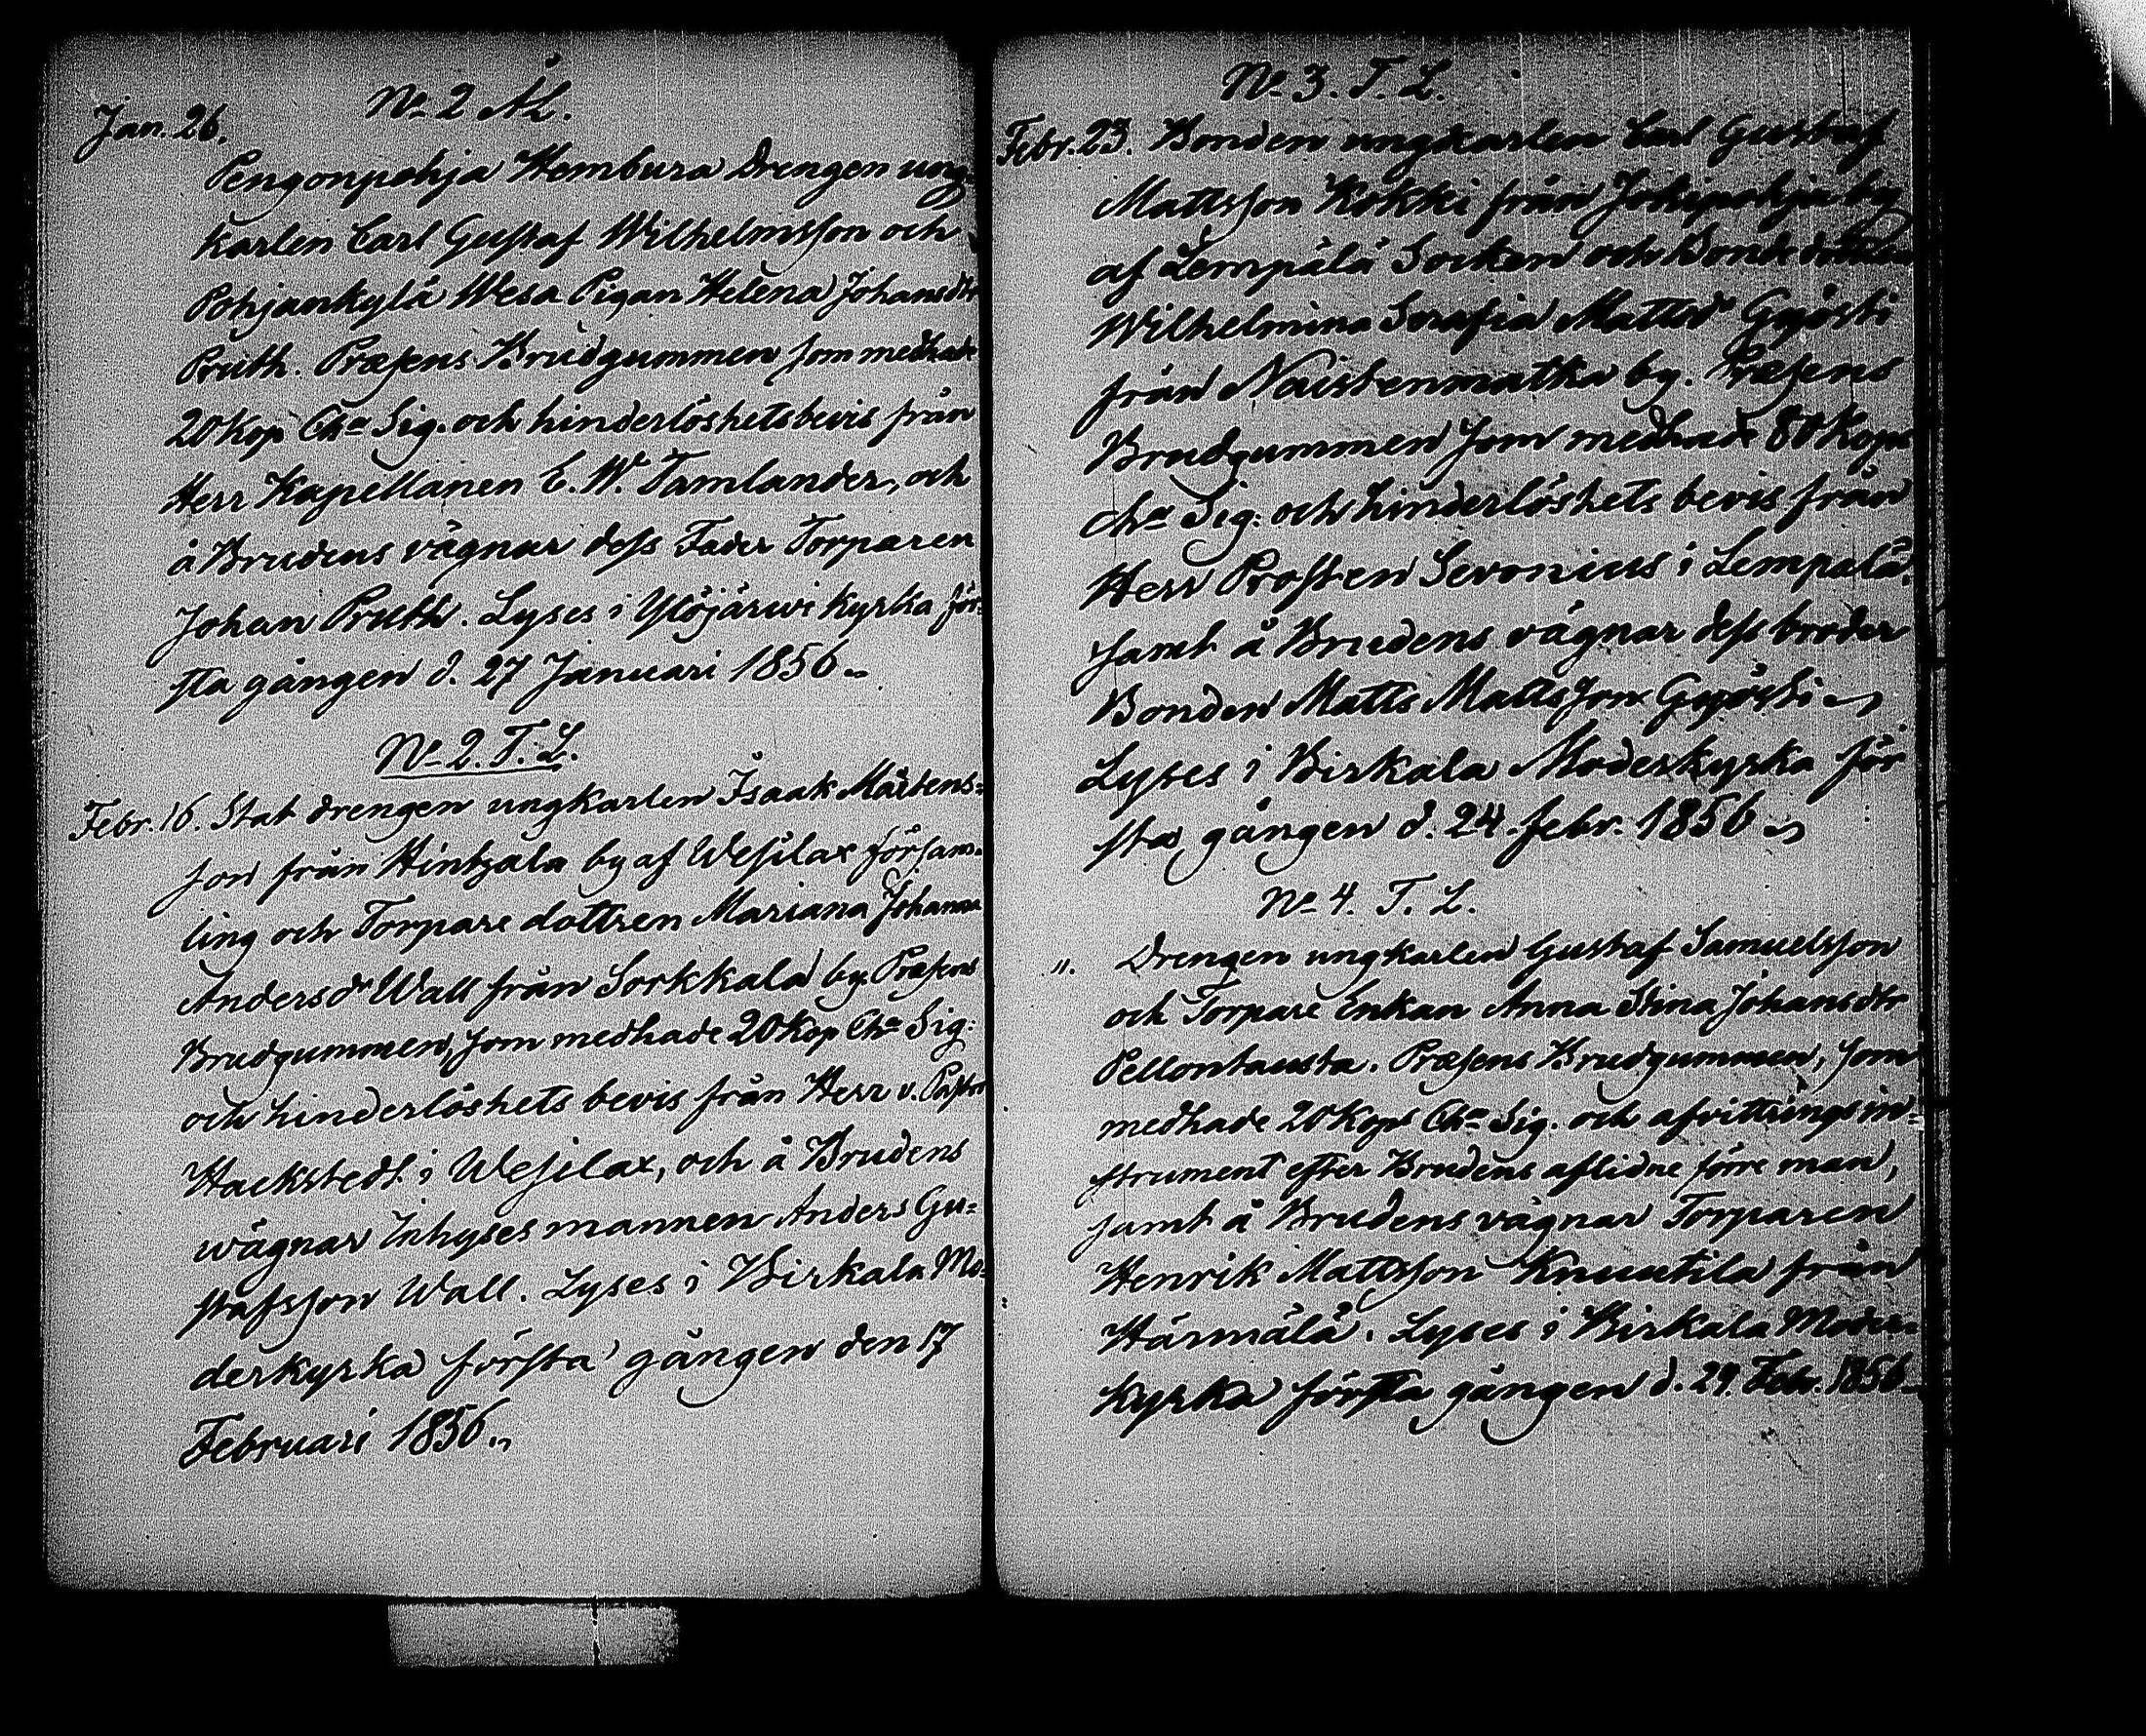 No 2 ÅL.
Jan. 26.
Pengonpohja Hembura Drengen ung-
karlen Carl Gustaf Wilhelmsson och
Pohjankylä Wesa Pigan Helena Johansdtr
Pruth. Præsens Brudgummen som medhade
20 Kop Cha Sig. och hinderlöshetsbevis från
Herr Kapellanen E. W. Tamlander, och
å Brudens vägnar dess Fader Torparen
Johan Pruth. Lyses i Ylöjärwi Kyrka för-
sta gången d. 27 Januari 1856
No 2. T. L.
Febr. 16. Stat drengen ungkarlen Isaak Mårtens-
son från Hinhjala by af Wesilax försam-
ling och Torpare dottren Mariana Johanna
Andersdr Wall från Sorkkala by. Præsens
Brudgummen, som medhade 20 Kop Cha Sig:
och hinderlöshets bevis från Herr v. Pastor
Hackstedt i Wesilax, och å Brudens
wägnar Inhyses mannen Anders Gu-
stafsson Wall. Lyses i Birkala Mo-
derkyrka första gången den 17
Februari 1856
No 3. T. L.
Febr. 23. Bonden ungkarlen Carl Gustaf
Mattsson Kokki från Jokipohja by
af Lempälä Socken och Bonde dottren
Wilhelmina Serafia Mattsdr Gyösti
från Naistenmatka by. Præsens
Brudgummen som medhade 80 Kop
Cha Sig: och hinderlöshets bevis från
Herr Prosten Sevonius i Lempälä,
samt å Brudens vägnar dess broder
Bonden Matts Mattsson Gyösti
Lyses i Birkala Moderkyrka för
sta gången d. 24. febr. 1856
No 4. T. L.
". Drengen ungkarlen Gustaf Samuelsson
och Torpare Enkan Anna Stina Johansdtr
Pellontausta. Præsens Brudgummen, som
medhade 20 Kop Cha Sig. och afvittrings in-
strument efter Brudens aflidne förre man,
samt å Brudens vägnar Torparen
Henrik Mattsson Knuutila från
Härmälä. Lyses i Birkala Moder-
kyrka första gången d. 24. Febr. 1856